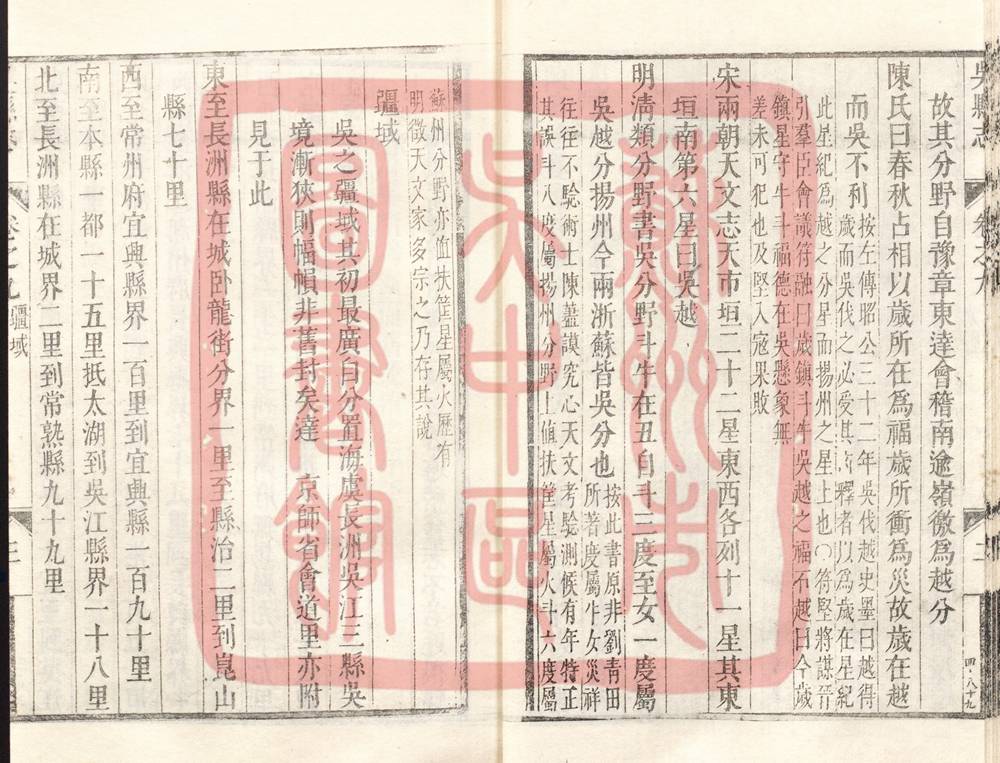 吳縣志　卷之九
故其分野自豫章東達會稽南逾嶺徼為越分
陳氏曰春秋占相以歲所在為福歲所衝為災故歲在越
而吳不利
按左傳昭公三十二年吳伐越史墨曰越得
歲而吳伐之必受其 釋者以為歲在星紀
此星紀為越之分星而揚州之星上也○符堅將謀晉
引羣臣會議符融曰歲鎮斗牛吳越之福不越曰今歲
鎮星守牛斗福德在吳懸象無
差未可犯也及堅入宼果敗
宋兩朝天文志天市垣二十二星東西各列十一星其東
垣南第六星曰吳越
明清類分野書吳分野斗牛在丑自斗三度至女一度屬
吳越分揚州今兩浙蘇皆吳分也
按此書原非劉青田
所著度屬牛女災祥
往往不驗術士陳藎謨究心天文考驗測候有年特正
其誤斗八度屬揚州分野上值扶筐星屬火斗六度屬
蘇州分野亦值扶筐星屬火歷有
明徵天文家多宗之乃存其說
疆域
吳之疆域其初最廣自分置海虞長洲吳江三縣吳
境漸狹則幅幀非舊封矣達　京師省會道里亦附
見于此
東至長洲縣在城卧龍街分界一里至縣治二里到崑山
縣七十里
西至常州府宜興縣界一百里到宜興縣一百九十里
南至本縣一都一十五里抵太湖到吳江縣界一十八里
北至長洲縣在城界二里到常熟縣九十九里
卷之九 疆域
三
四·八十九
蘇州市
吳中區
圖書館